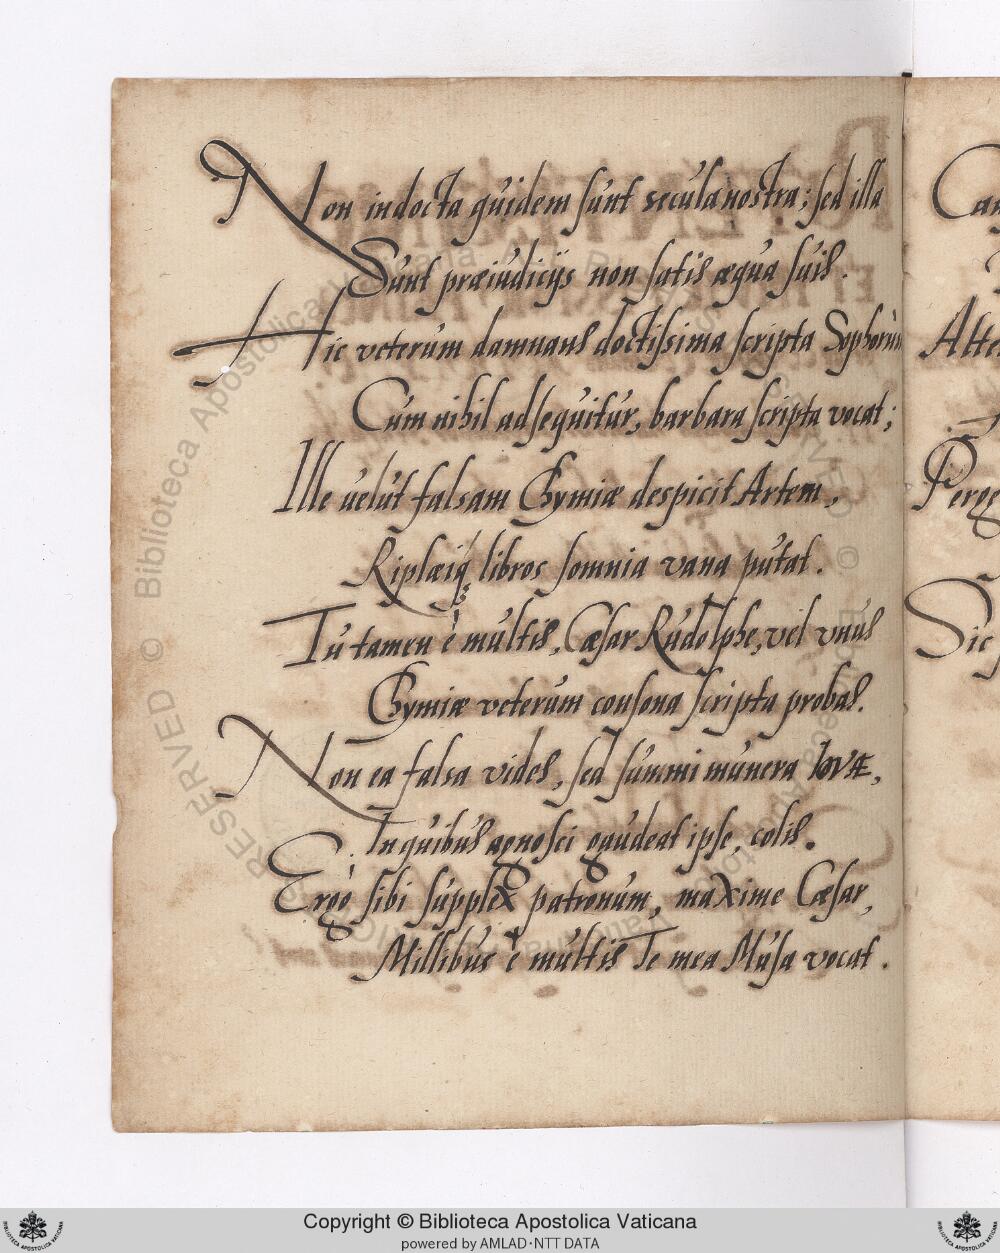 Non indocta quidem sunt secula nostra; sed illa
Sunt præiudicijs non satis æqua suis.
Hic veterum damnans doctissima scripta Sophorum
Cum nihil adsequitur, barbara scripta vocat;
Ille uelut falsam Chymiæ despicit Artem,
Riplæiq₃ libros somnia vana putat.
Tu tamen è multis, Cæsar Rudolphe, vel vnus
Chymiæ veterum consona scripta probas.
Non ea falsa vides, sed summi munera IovÆ,
In quibus agnosci gaudeat ipse, colis.
Ergò sibi supplex patronum, maxime Cæsar,
Millibus è multis Te mea Musa vocat.
Car
Alte
Pereg
Sic
Copyright © Biblioteca Apostolica Vaticana
powered by AMLAD·NTT DATA